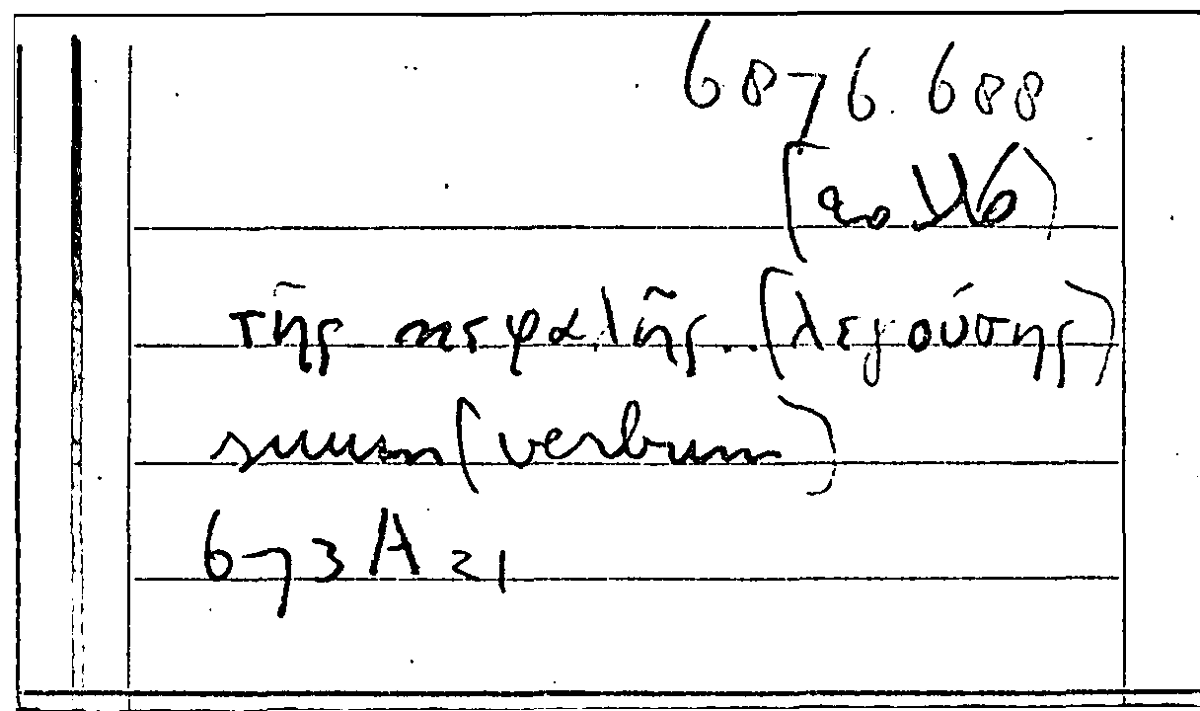 6876.688
τῆς κεφαλῆς..(λεγούσης)
suum (verbum)
673A21